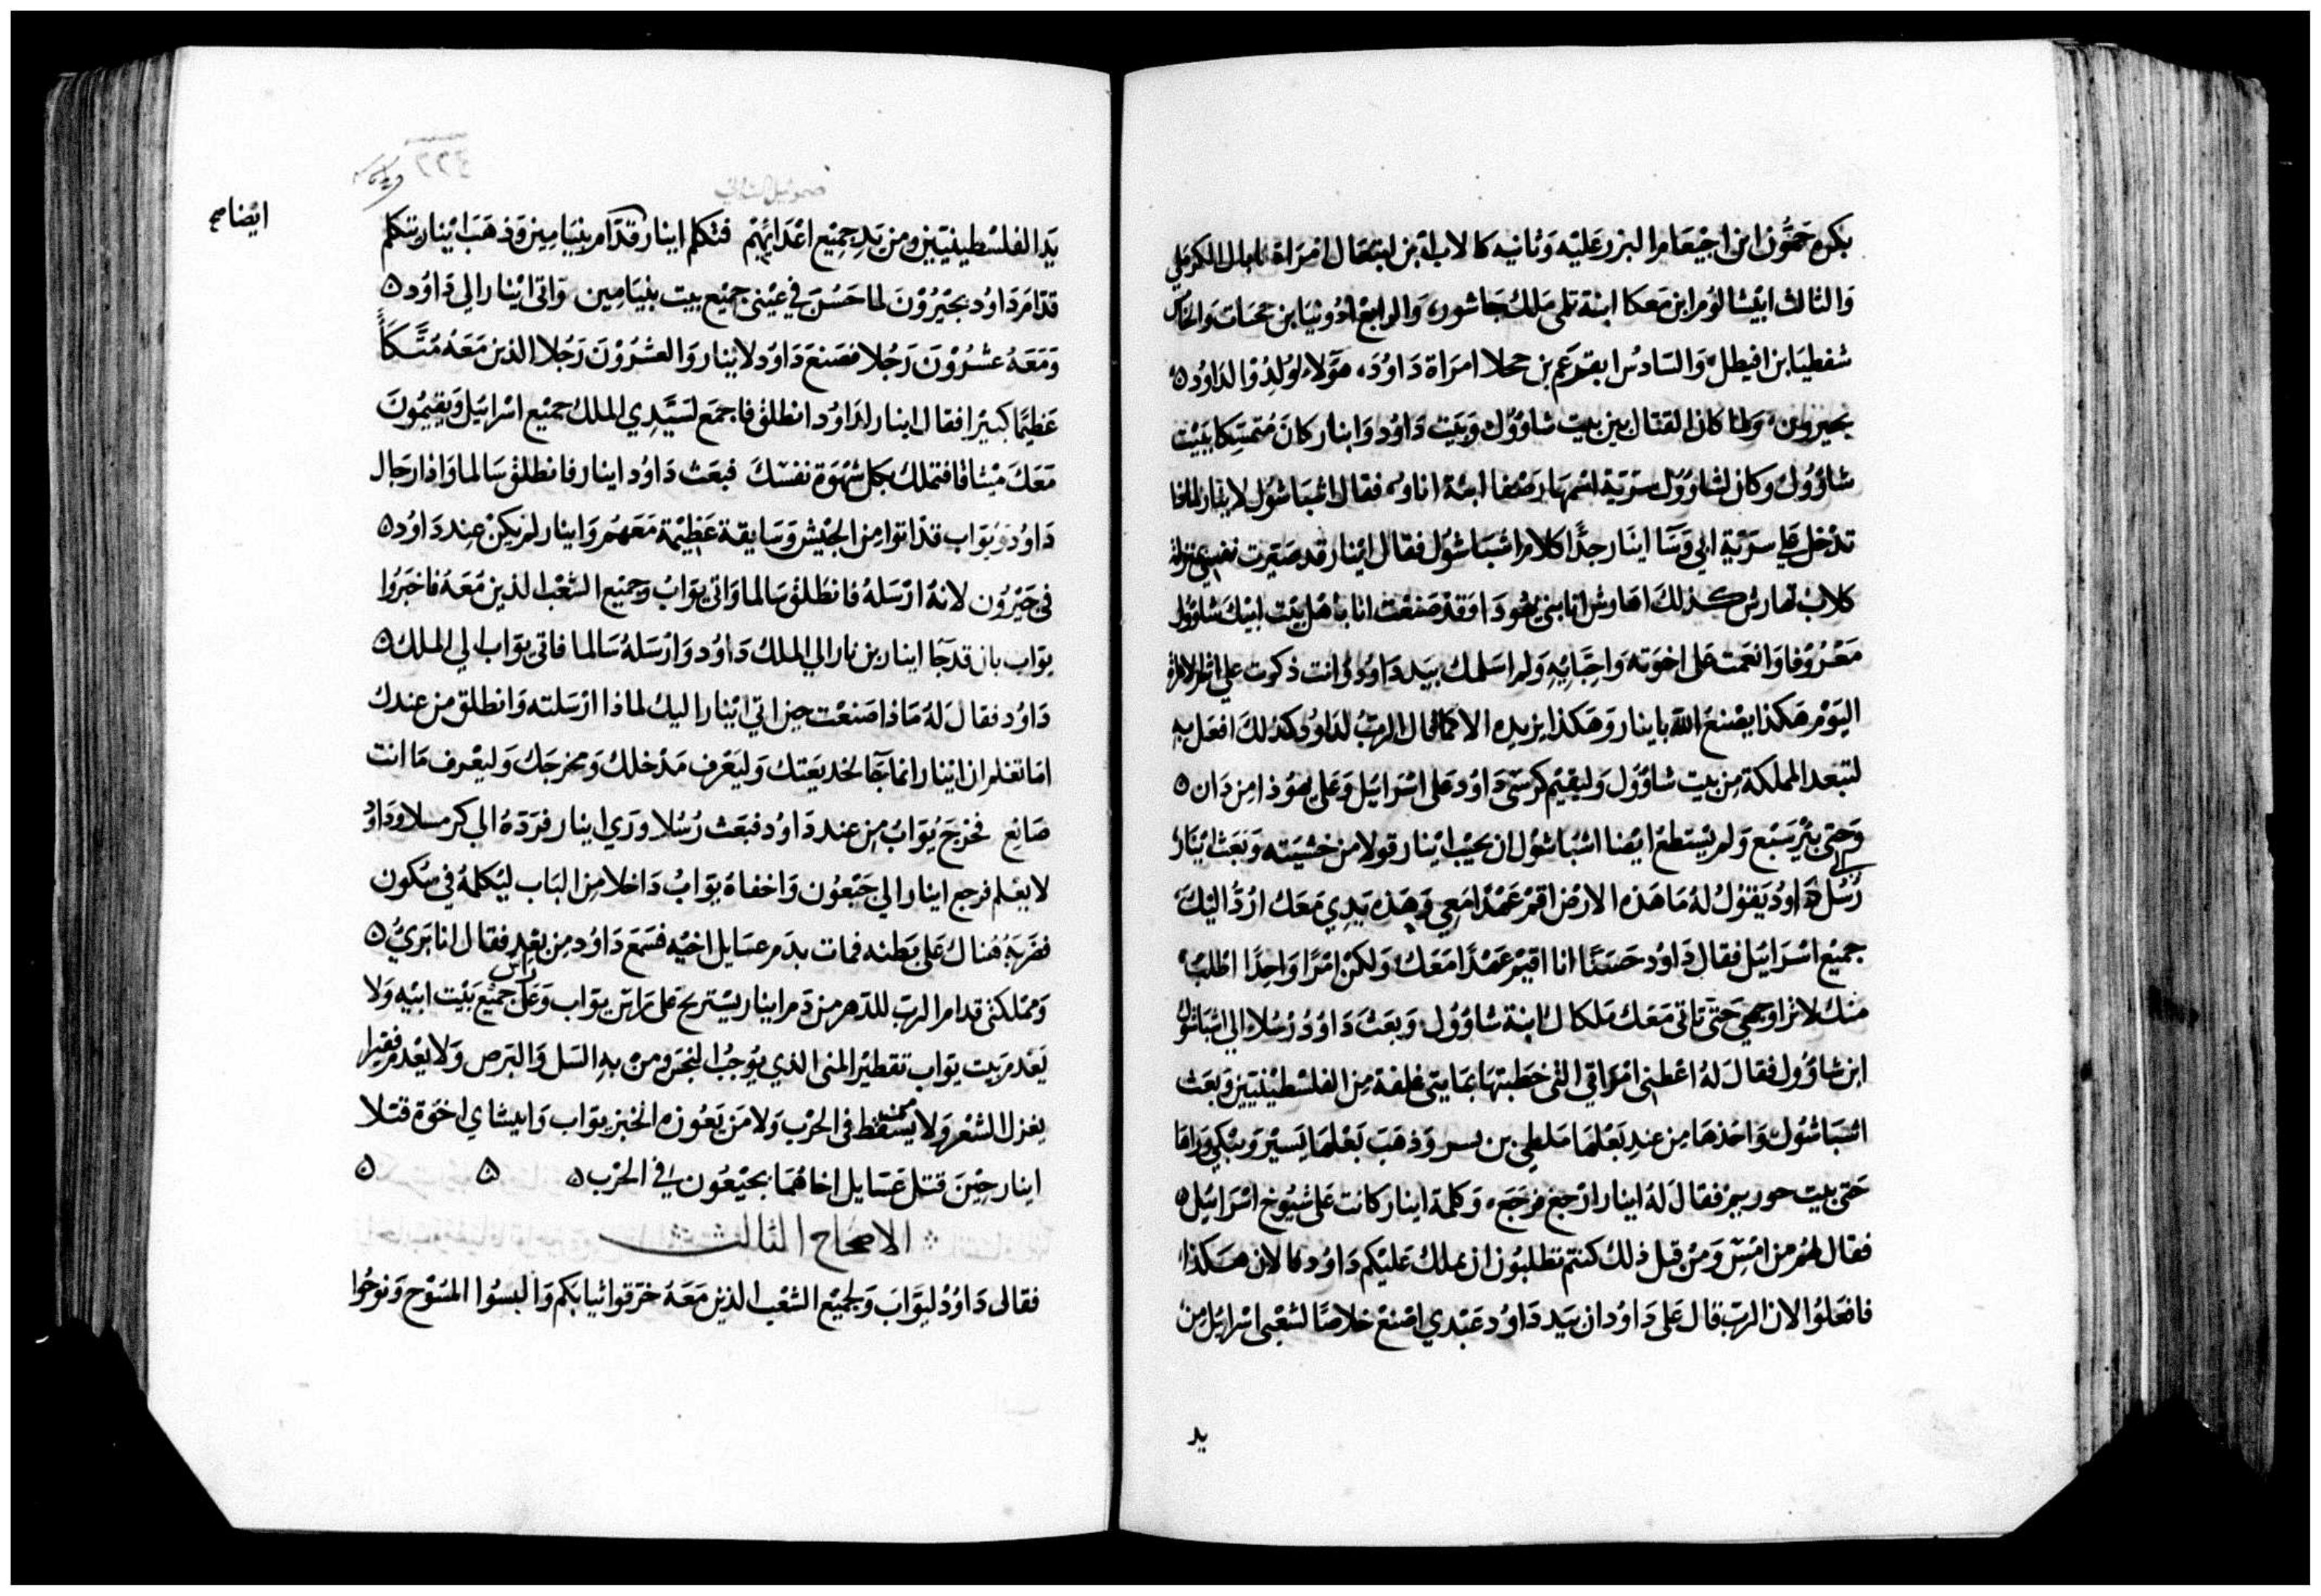 بكره حمون ابن اجيعام البزرعليه وثانيه كالاب ابن ابيغال امراة نابال الكرملي
والثالث ابيشالوم ابن معكا ابنة تلمي ملك جاشور، والرابع ادونيا بن حجات والخامس
شفطيا بن افيطل والسادس ابقرعم بن حجلا امراة داود، هولاء ولدوا لداود ٥
بحيرون ولما كان القتال بين بيت شاوول وبيت داود وابنار كان متمسكا ببيت
شاوول وكان لشاوول سرية اسمها رصفا ابنة اناو فقال اشباشول لابنار لماذا
تدخل على سرية ابي وسا ابنار جدا كلام اشباشول فقال ابنار قد صيرت نفسي
كلاب تهارش كذلك اهاوش انا بني يهودا وقد صنعت انا باهل بيت ابيك شاوول
معروفا وانعمت على اخوته واحبايه ولم اسلمك بيد داود وانت ذكرت علي اثم الامراة
اليوم هكذا يصنع الله بابنار وهكذا يزيده الا كما قال الرب لداود كذلك افعل به
لتبعد المملكة من بيت شاوول وليقيم كرسي داود على اسرايل وعلى يهوذا من دان ٥
وحتى بير سبع ولم يستطع ايضا اشباشول ان يجيب ابنار قولا من خشيته وبعث ابنار
رسل الي داود يقول له ما هذه الارض اقم عهدا معي وهذه يدي معك ارد اليك
جميع اسرايل فقال داود حسنا انا اقيم عهدا معك ولكن امرا واحدا اطلب
منك لا تراوجهي حتى تاتي معك ملكال ابنة شاوول وبعث داود رسلا الي اشباشول
ابن شاوول فقال له اعطني امراتي التي خطبتها بمايتي غلفة من الفلسطينيين وبعث
اشباشول واخذها من عند بعلها ملطي بن لسر وذهب بعلها يسير ويبكي وراها
حتى بيت حوريم فقال له ابنار ارجع فرجع، وكلمة ابنار كانت على شيوخ اسرايل ٥
فقال لهم من امس ومن قبل ذلك كنتم تطلبون ان يملك عليكم داود فالان هكذا
فافعلوا الان الرب قال على داود ان بيد داود عبدي اصنع خلاصا لشعبي اسرايل من
يد
صموئيل الثاني
٤٢٢
يد الفلسطينيين ومن يد جميع اعدايهم فتكلم ابنار قدام بنيامين وذهب ابنار يتكلم
ايضا صح
قدام داود بحيرون لما حسن في عيني جميع بيت بنيامين واتى ابنار الي داود ٥
ومعه عشرون رجلا فصنع داود لابنار والعشرون رجلا الذين معه متكأ
عظيما كبيرا فقال ابنار لداود انطلق فاجمع لسيدي الملك جميع اسرايل ويقيمون
معك ميثاقا فتملك بكل شهوة نفسك فبعث داود ابنار فانطلق سالما واذا رجال
داود ويواب قد اتوا من الجيش وسايقة عظيمة معهم وابنار لم يكن عند داود ٥
في حيرون لانه ارسله فانطلق سالما واتى يواب وجميع الشعب الذين معه فاخبروا
يواب بان قد جا ابنار بن نار الي الملك داود وارسله سالما فاتى يواب الي الملك ٥
داود فقال له ماذا صنعت حين اتي ابنار اليك لماذا ارسلته وانطلق من عندك
اما تعلم ان ابنار انما جآ لخديعتك وليعرف مدخلك ومخرجك وليعرف ما انت
صانع فخرج يواب من عند داود فبعث رسلا وري ابنار فرده الي كرمسلا وداود
لا يعلم فرجع ابنار الي جبعون واخفاه يواب داخلا من الباب ليكلمه في سكون
فضربه هناك على بطنه فمات بدم عسايل اخيه فسمع داود من بعد فقال انا بري ٥
ومملكتي قدام الرب للدهر من دم ابنار يستريح على راس يواب وعلى راس جميع بيت ابيه ولا
يعدم بيت يواب تقطير المني الذي يوجب النجس ومن به السل والبرص ولا يعدم فقيرا
يغزل الشعر ولا ممن يسقط في الحرب ولا من يعوزه الخبز يواب وابيشاي اخوة قتلا
ابنار حين قتل عسايل اخاهما بحيعون في الحرب ٥ ٥ ٥
الاصحاح الثالث
فقال داود ليواب ولجميع الشعب الذين معه خرقوا ثيابكم والبسوا المسوح ونوحوا